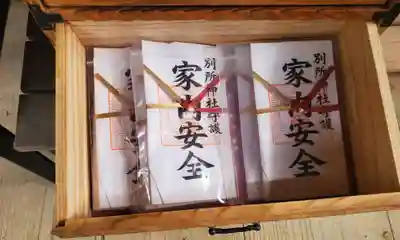 家内安全
別所神社守護
家内安全
別所神社守護
家内安全